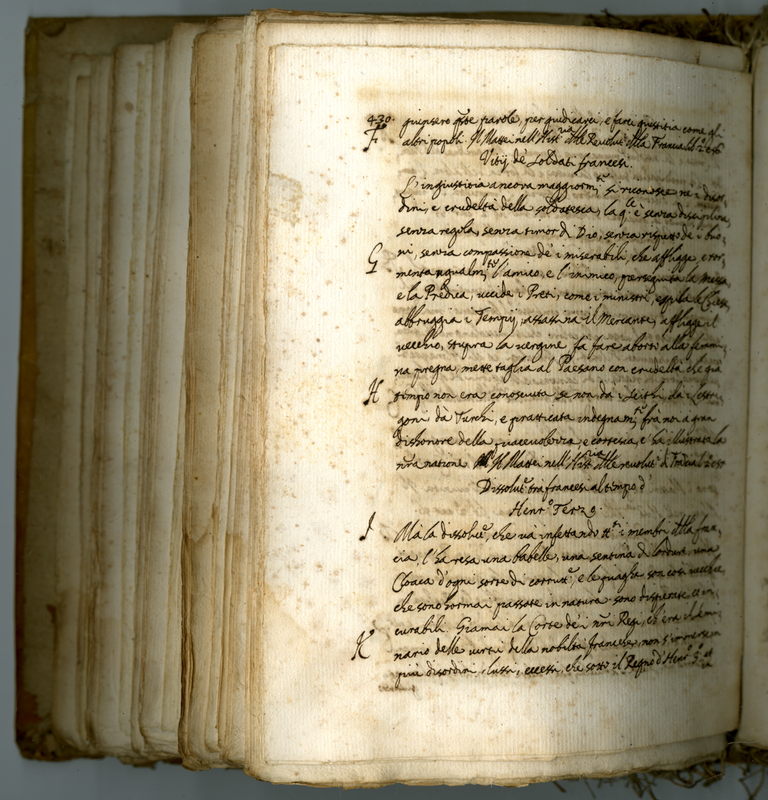 430. giunsero q̃ste parole, per giudicarci, e fare giustitia come gli
F altri popoli. Il Mattei nell'Hist.ria della Revoluz.ni della Francia lib.
Vitij de' Soldati francesi.
L'ingiustitia ancora maggiorm.te si riconosce ne i disor-
dini, e crudeltà della soldatesca, la q.le è senza disciplina,
senza regola, senza timor di Dio, senza rispetto de i buo-
G ni, senza compassione de' i miserabili, che affligge, e tor-
menta egualm.te l'amico, e l'inimico, perseguita la Messa
e la Predica, uccide i Preti, come i ministri, le Chiese,
abbruggia i Tempij, assassina il Mercante, affligge il
vecchio, stupra la vergine fa fare aborti alla femmi-
na pregna, mette taglia al Paesano con crudeltà che già
H tempo non era conosciuta se non da' i Scithi, da i Lestri-
goni da Turchi, e pratticata indegnam.te frà noi a gran
dishonore della piacevolezza e cortesia, e hà illustrata la
nr̃a natione. Il Mattei nell'Hist.ria delle revoluz.ni di Francia lib.
Dissolut.ne tra francesi al tempo d'
Henr.o Terzo.
I Ma la dissolut.ne, che và infettando tt.i i membri della fran-
cia, l'hà resa una babelle, una sentina di lordure, una
Cloaca d'ogni sorte di corrutt.ne, e le piaghe son così vecchie,
che sono hormai passate in natura. sono disperate et in-
curabili. Giamai la Corte de' i nr̃i Regi, ch'era il semi-
K nario delle virtù della nobiltà francese, non s'immerse in
più disordini, lussi, eccessi, che sotto il Regno d'Henr.o 3.o et